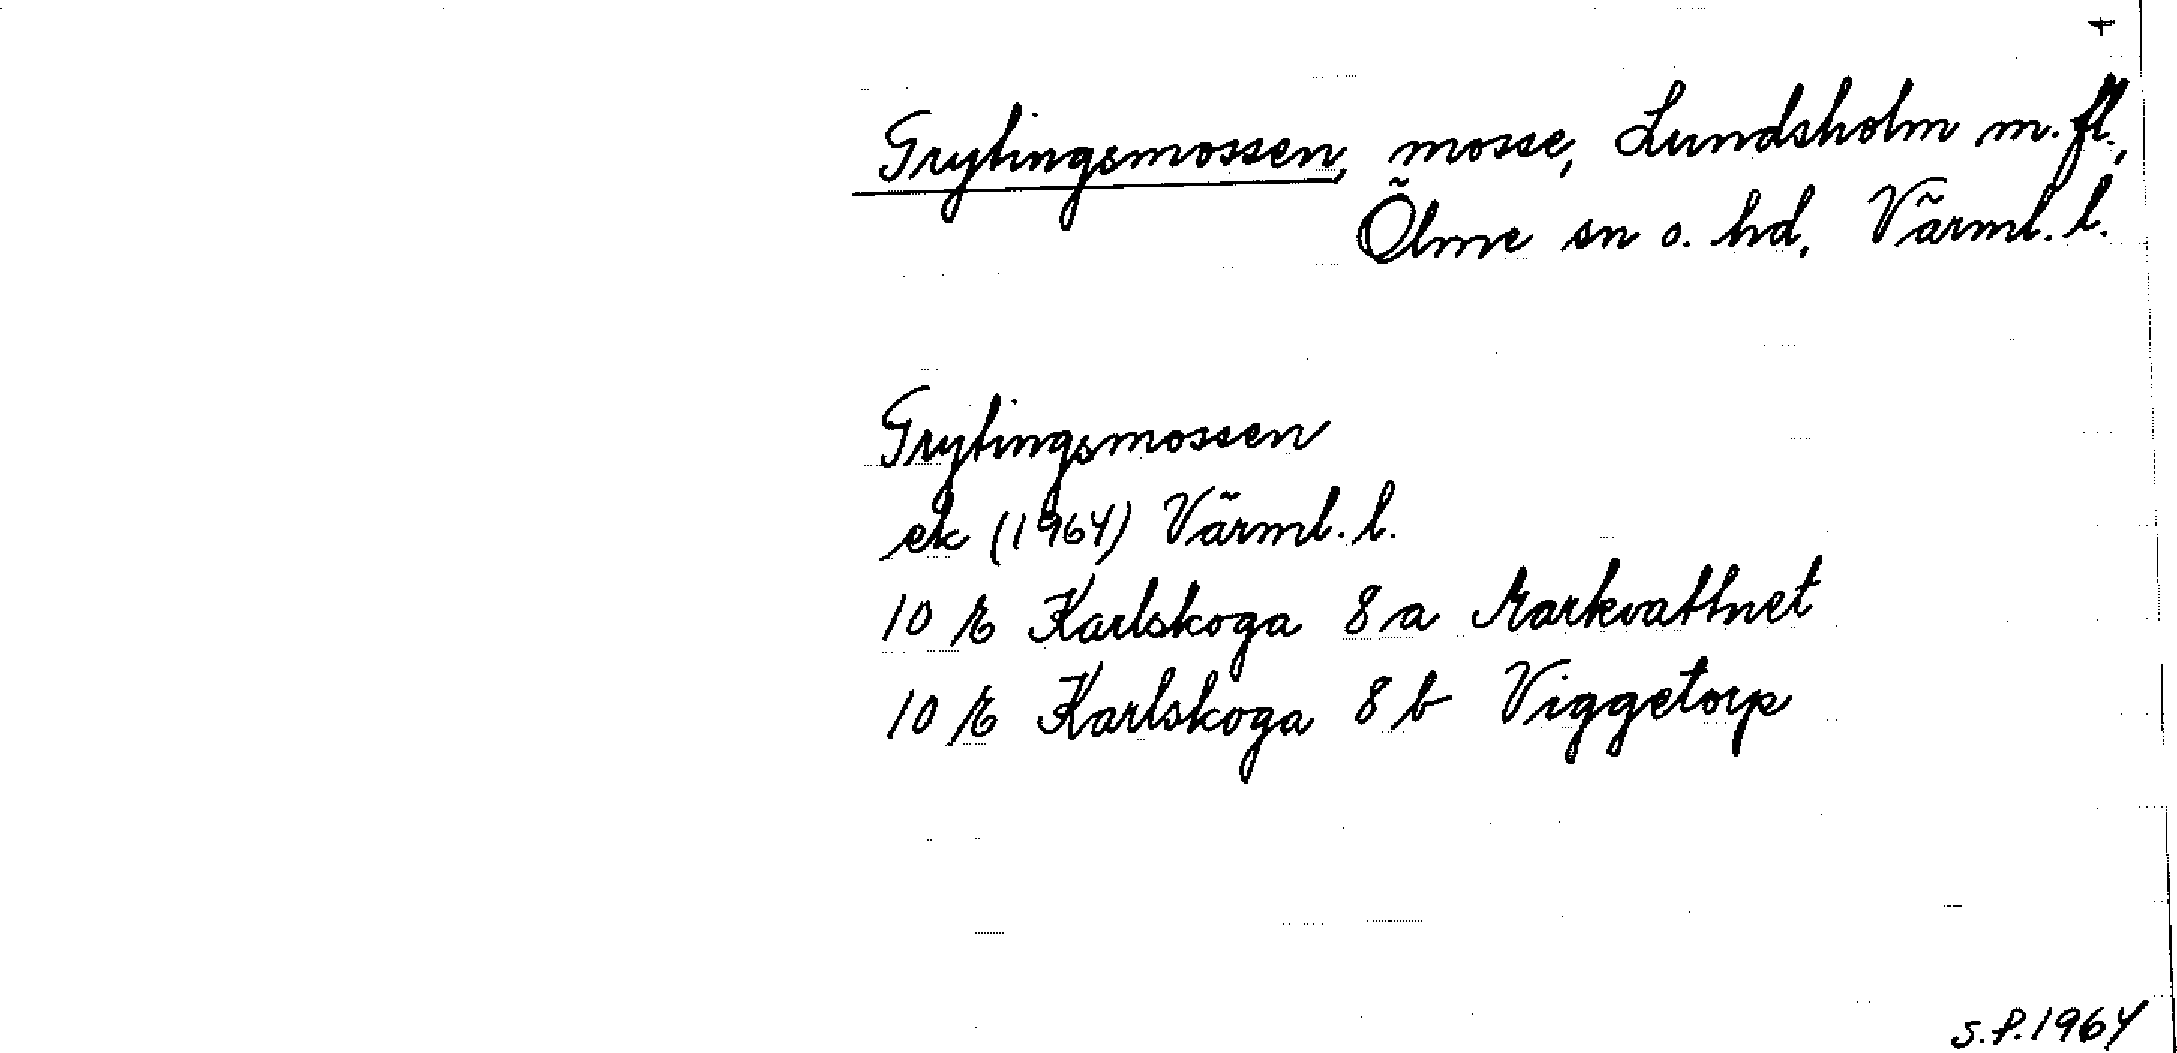 +
Grytingsmossen, mosse, Lundsholm m.fl.,
Ölme sn o. hd, Värml. l.
Grytingsmossen
ek (1964) Värml. l.
10 E Karlskoga 8 a Markvattnet
10 E Karlskoga 8 b Viggetorp
S.P. 1964